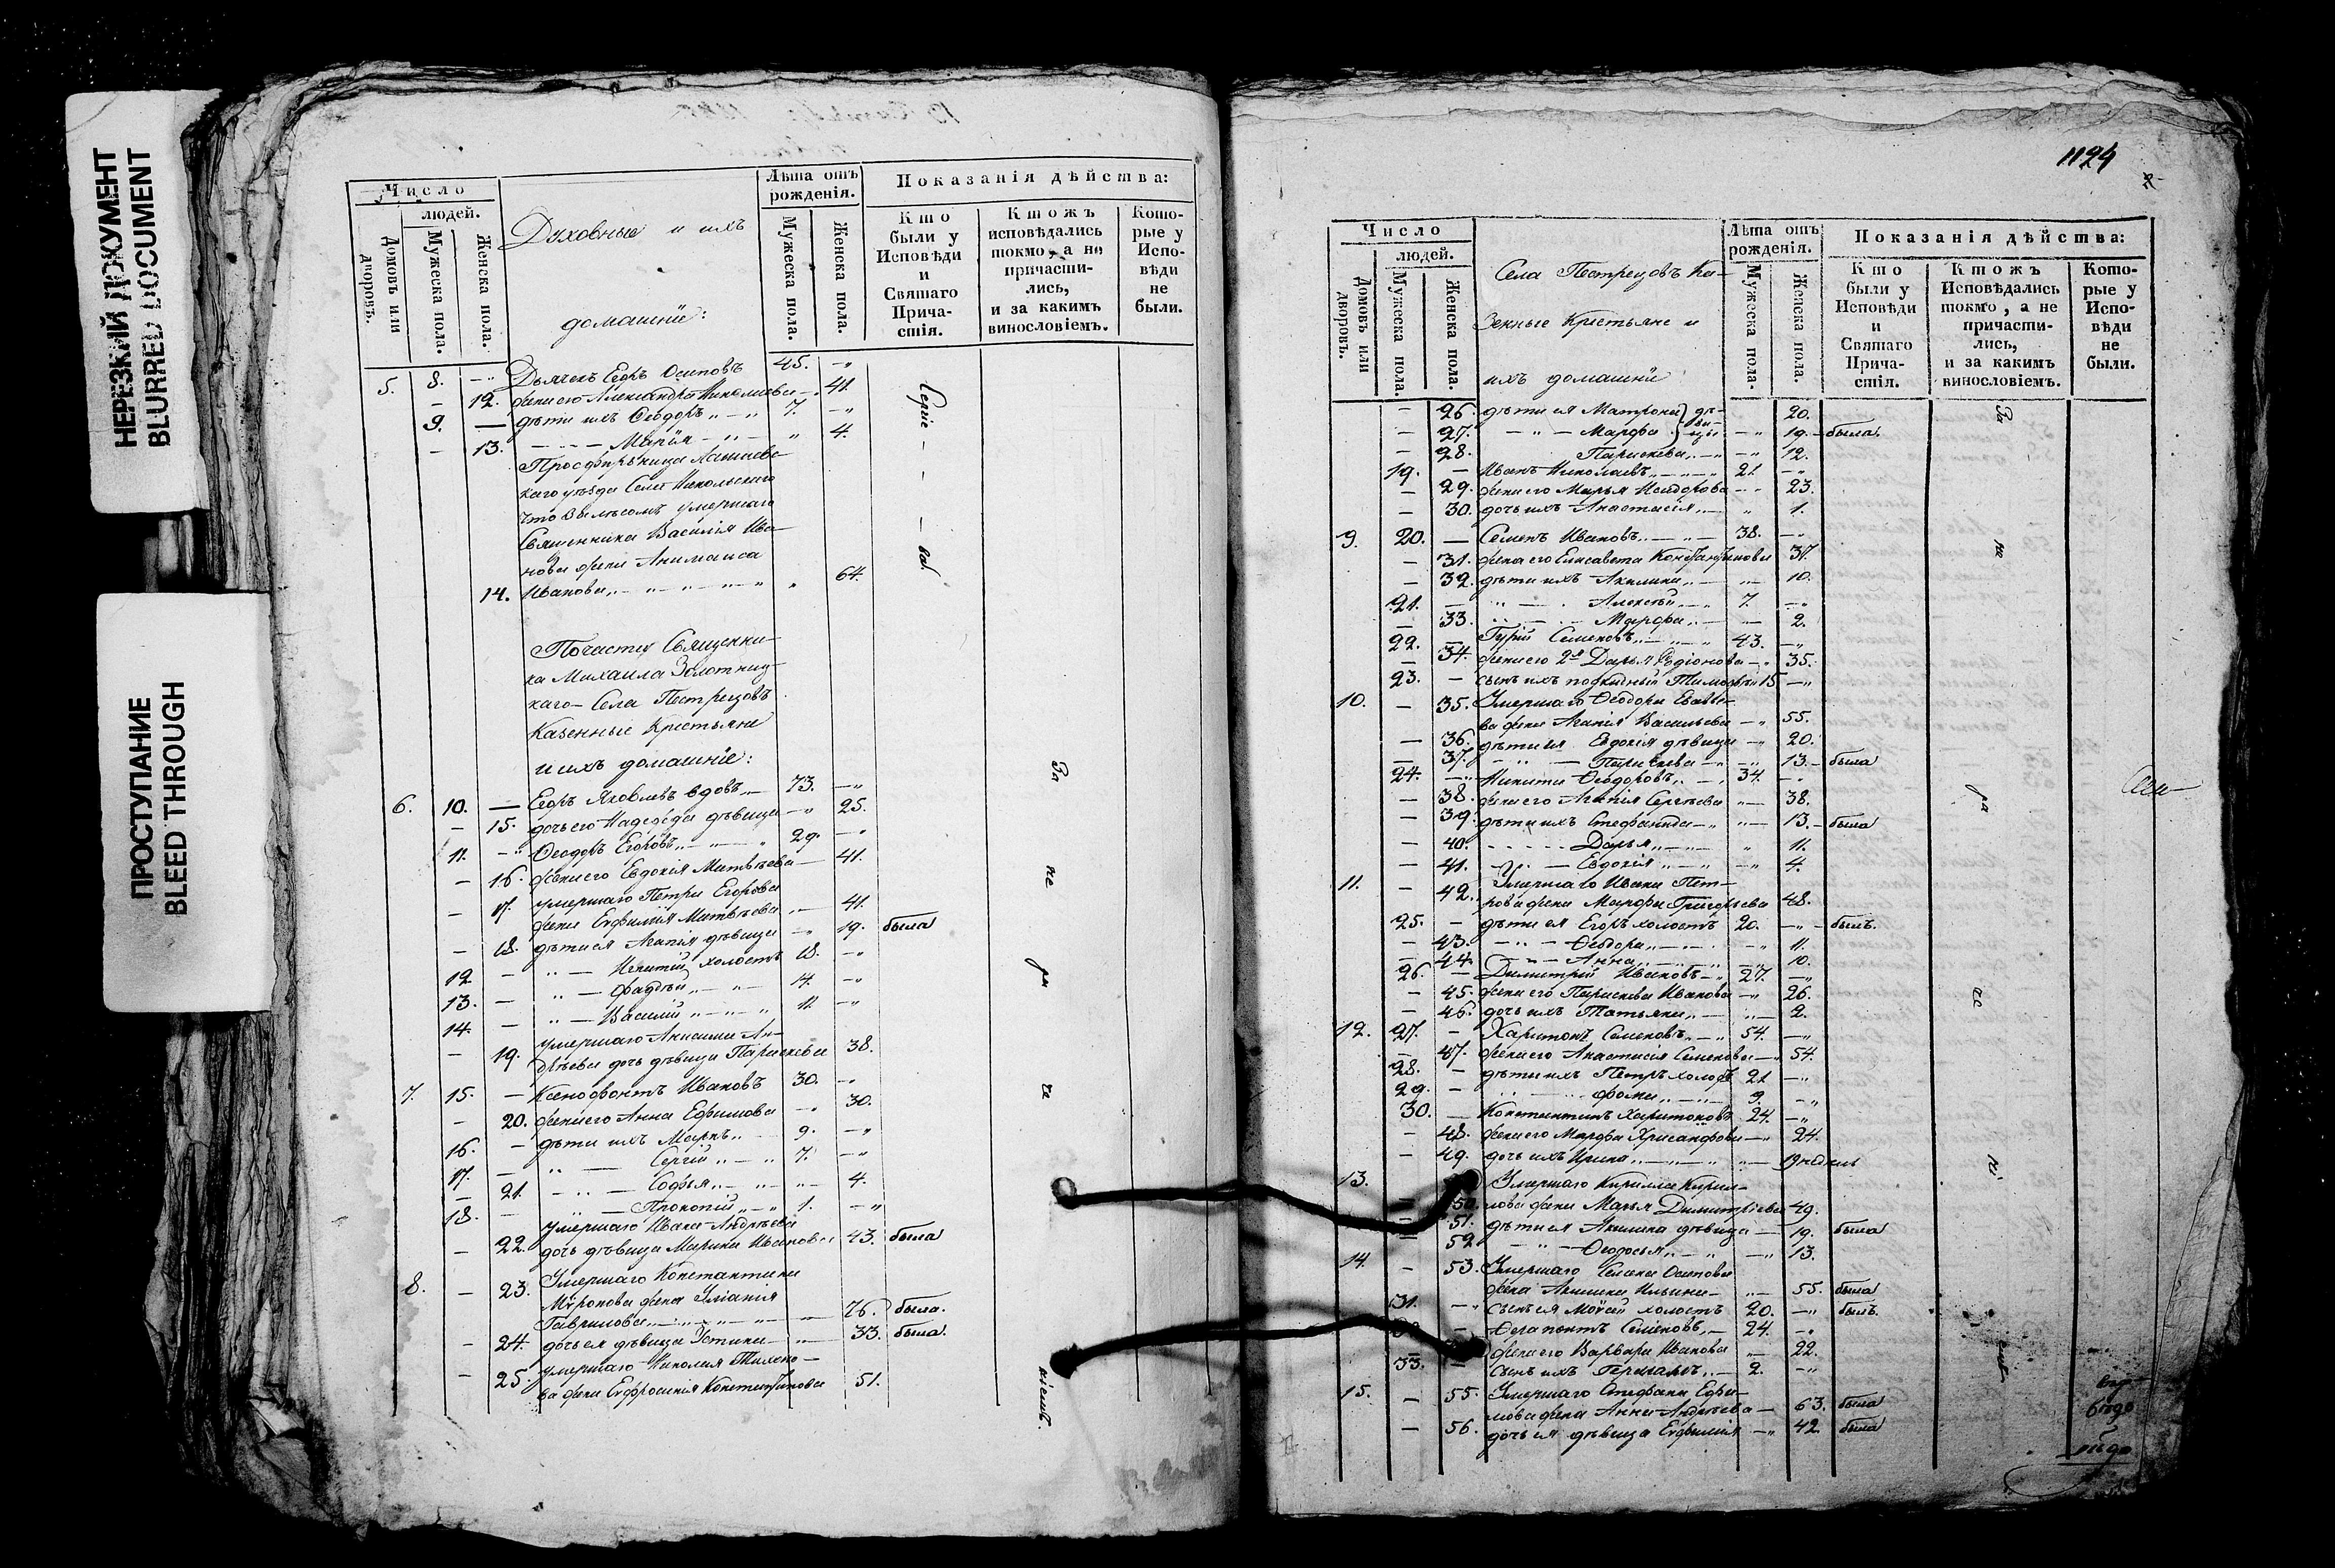 НЕРЕЗКИЙ ДОКУМЕНТ
BLURRED DOCUMENT
ПРОСТУПАНИЕ
BLEED THROUGH
Число
людей.
Домовъ или дворовъ.
Мужеска пола.
Женска пола.
Духовные и ихъ
домашніе:
Лѣта отъ рожденія.
Мужеска пола.
Женска пола.
Показанія дѣйства:
Кто были у Исповѣди и Святаго Причастія.
Ктожъ исповѣдались токмо, а не причастились, и за какимъ винословіемъ.
Которые у Исповѣди не были.
5. 8. — Дьячекъ Егоръ Осиповъ 45. —
— 12. жена его Александра Николаева — 41.
9. — дѣти ихъ Ѳеодоръ 7. —
— 13. — Марія 4.
Просфирьница Лаишев-
скаго уѣзда Села Никольскаго
умершаго
Священника Василія Ива-
нова жена
14. Иванова 64.
По части Священни-
ка Михаила Золотниц-
каго — Села Пестрецовъ
Казенные Крестьяне
и ихъ домашніе:
6. 10. — Егоръ Яковлевъ вдовъ 73. —
— 15. дочь его Надежда дѣвица — 25.
11. — Ѳеодоръ Егоровъ 29. —
— 16. жена его Евдокія Матвѣева — 41.
— 17. умершаго Петра Егорова
жена Евфимія Матвѣева — 41.
— 18. дѣти ея Агапія дѣвица — 19. была
12 — Игнатій холостъ 18. —
13. — Фаддей 14. —
14. — Василій 11 —
— 19. умершаго Анисима Ан-
дрѣева дочь дѣвица Параскева 38.
7. 15. — Ксенофонтъ Ивановъ 30. —
— 20. жена его Анна Ефимова — 30.
16. — дѣти ихъ Маркъ 9. —
17. — Сергій 7. —
— 21. — Софья — 4.
18. — Прокопій 1. —
умершаго Ивана Андрѣева
— 22. дочь дѣвица Марина Иванова 43. была
8. — 23. Умершаго Константина
Мѵронова жена Уліанія
Гаврилова 76. была.
— 24. дочь ея дѣвица Устинья — 33. была.
— 25. умершаго Николая Тихоно-
ва жена Евфросинія Константинова 51.
За не
1124
Число
людей.
Домовъ или дворовъ.
Мужеска пола.
Женска пола.
Села Пестрецовъ Ка-
зенные Крестьяне и
ихъ домашніе
Лѣта отъ рожденія.
Мужеска пола.
Женска пола.
Показанія дѣйства:
Кто были у Исповѣди и Святаго Причастія.
Ктожъ Исповѣдались токмо, а не причастились, и за какимъ винословіемъ.
Которые у Исповѣди не были.
— 26. дѣти ея Матрона } дѣ- 20.
— 27. — Марфа } вицы — 19. — была.
— 28. Параскева — 12.
19. — Иванъ Николаевъ 21. —
— 29. жена его Марья Исидорова — 23.
— 30. дочь ихъ Анастасія 1.
9. 20. — Семенъ Ивановъ 38. —
— 31. жена его Елисавета Константинова 37.
— 32. дѣти ихъ Акилина — 10.
21. — Алексѣй 7. —
— 33. Марфа — 2.
22. — Гурій Семеновъ 43. —
— 34. жена его 2я Дарья Родіонова — 35.
23. — сынъ ихъ Тимофѣй 15 —
10. — 35. Умершаго Ѳеодора Савве-
ва жена Агапія Васильева — 55.
— 36. дѣти ея Евдокія дѣвица — 20.
— 37. — Параскева — 13. — была
24. — Никита Ѳеодоровъ 34. —
— 38. жена его Агапія Сергѣева — 38.
— 39. дѣти ихъ Стефанида — 13. — была
— 40. Дарья 11.
— 41. — Евдокія — 4.
11. — 42. Умершаго Ивана Пет-
рова жена Марфа Григорьева 48.
25. — дѣти ея Егоръ холостъ 20. — былъ.
— 43. — Ѳедора — 11.
— 44. — Анна — 10.
26. — Димитрій Ивановъ 27. —
— 45. жена его Параскева Иванова — 26.
— 46. дочь ихъ Татьяна — 2.
12. 27. — Харитонъ Семеновъ 54. —
— 47. жена его Анастасія Семенова — 54.
28. — дѣти ихъ Петръ холостъ 21 —
29. — Фома 9. —
30. — Константинъ Харитоновъ 24. —
— 48. жена его Марфа Хрисанфова — 24.
— 49. дочь ихъ Ирина — 19 недѣль
13. Умершаго Кирилла Кирил-
— 50. лова жена Марья Димитріева 49.
— 51. дѣти ея Акилина дѣвица — 19. была
— 52 — Ѳеодосья — 13.
14. — 53. Умершаго Семена Осипова
жена Акилина Ильина — 55. была
31. — сынъ ея Моѵсей холостъ 20. — былъ.
— Ѳерапонтъ Семеновъ 24. —
жена его Варвара Иванова 22.
33. — сынъ ихъ 2. —
15. — 55. Умершаго Стефана Ефи-
мова жена Анна Андрѣева — 63. была
— 56. дочь ея дѣвица Евфимія — 42. была
За